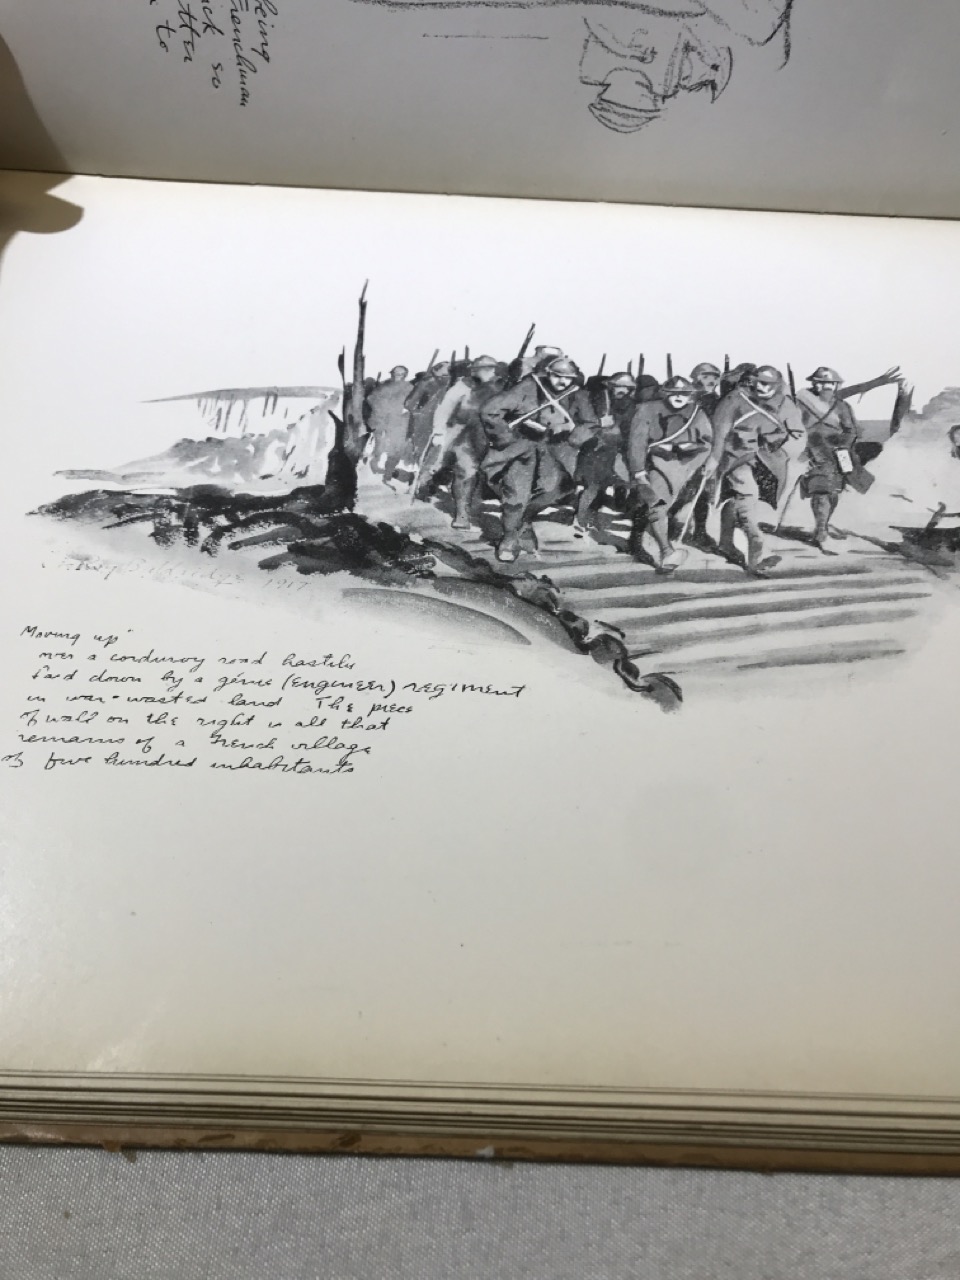 king
Frenchman
ick so
tter
to
1917
Moving up"
over a corduroy road hastily
laid down by a génie (engineer) regiment
in war-wasted land The piece
of wall on the right is all that
remains of a French village
of five hundred inhabitants